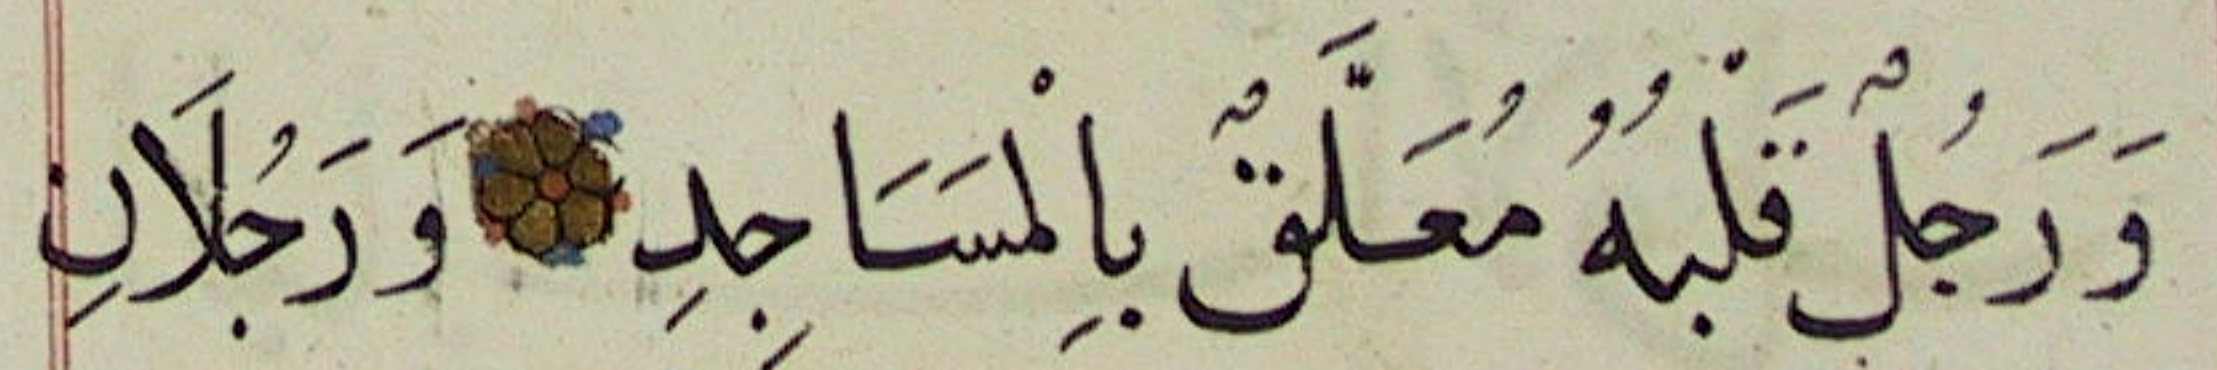 وَرَجُلٌ قَلْبُهُ مُعَلَّقٌ بِالْمَسَاجِدِ وَرَجُلَانِ